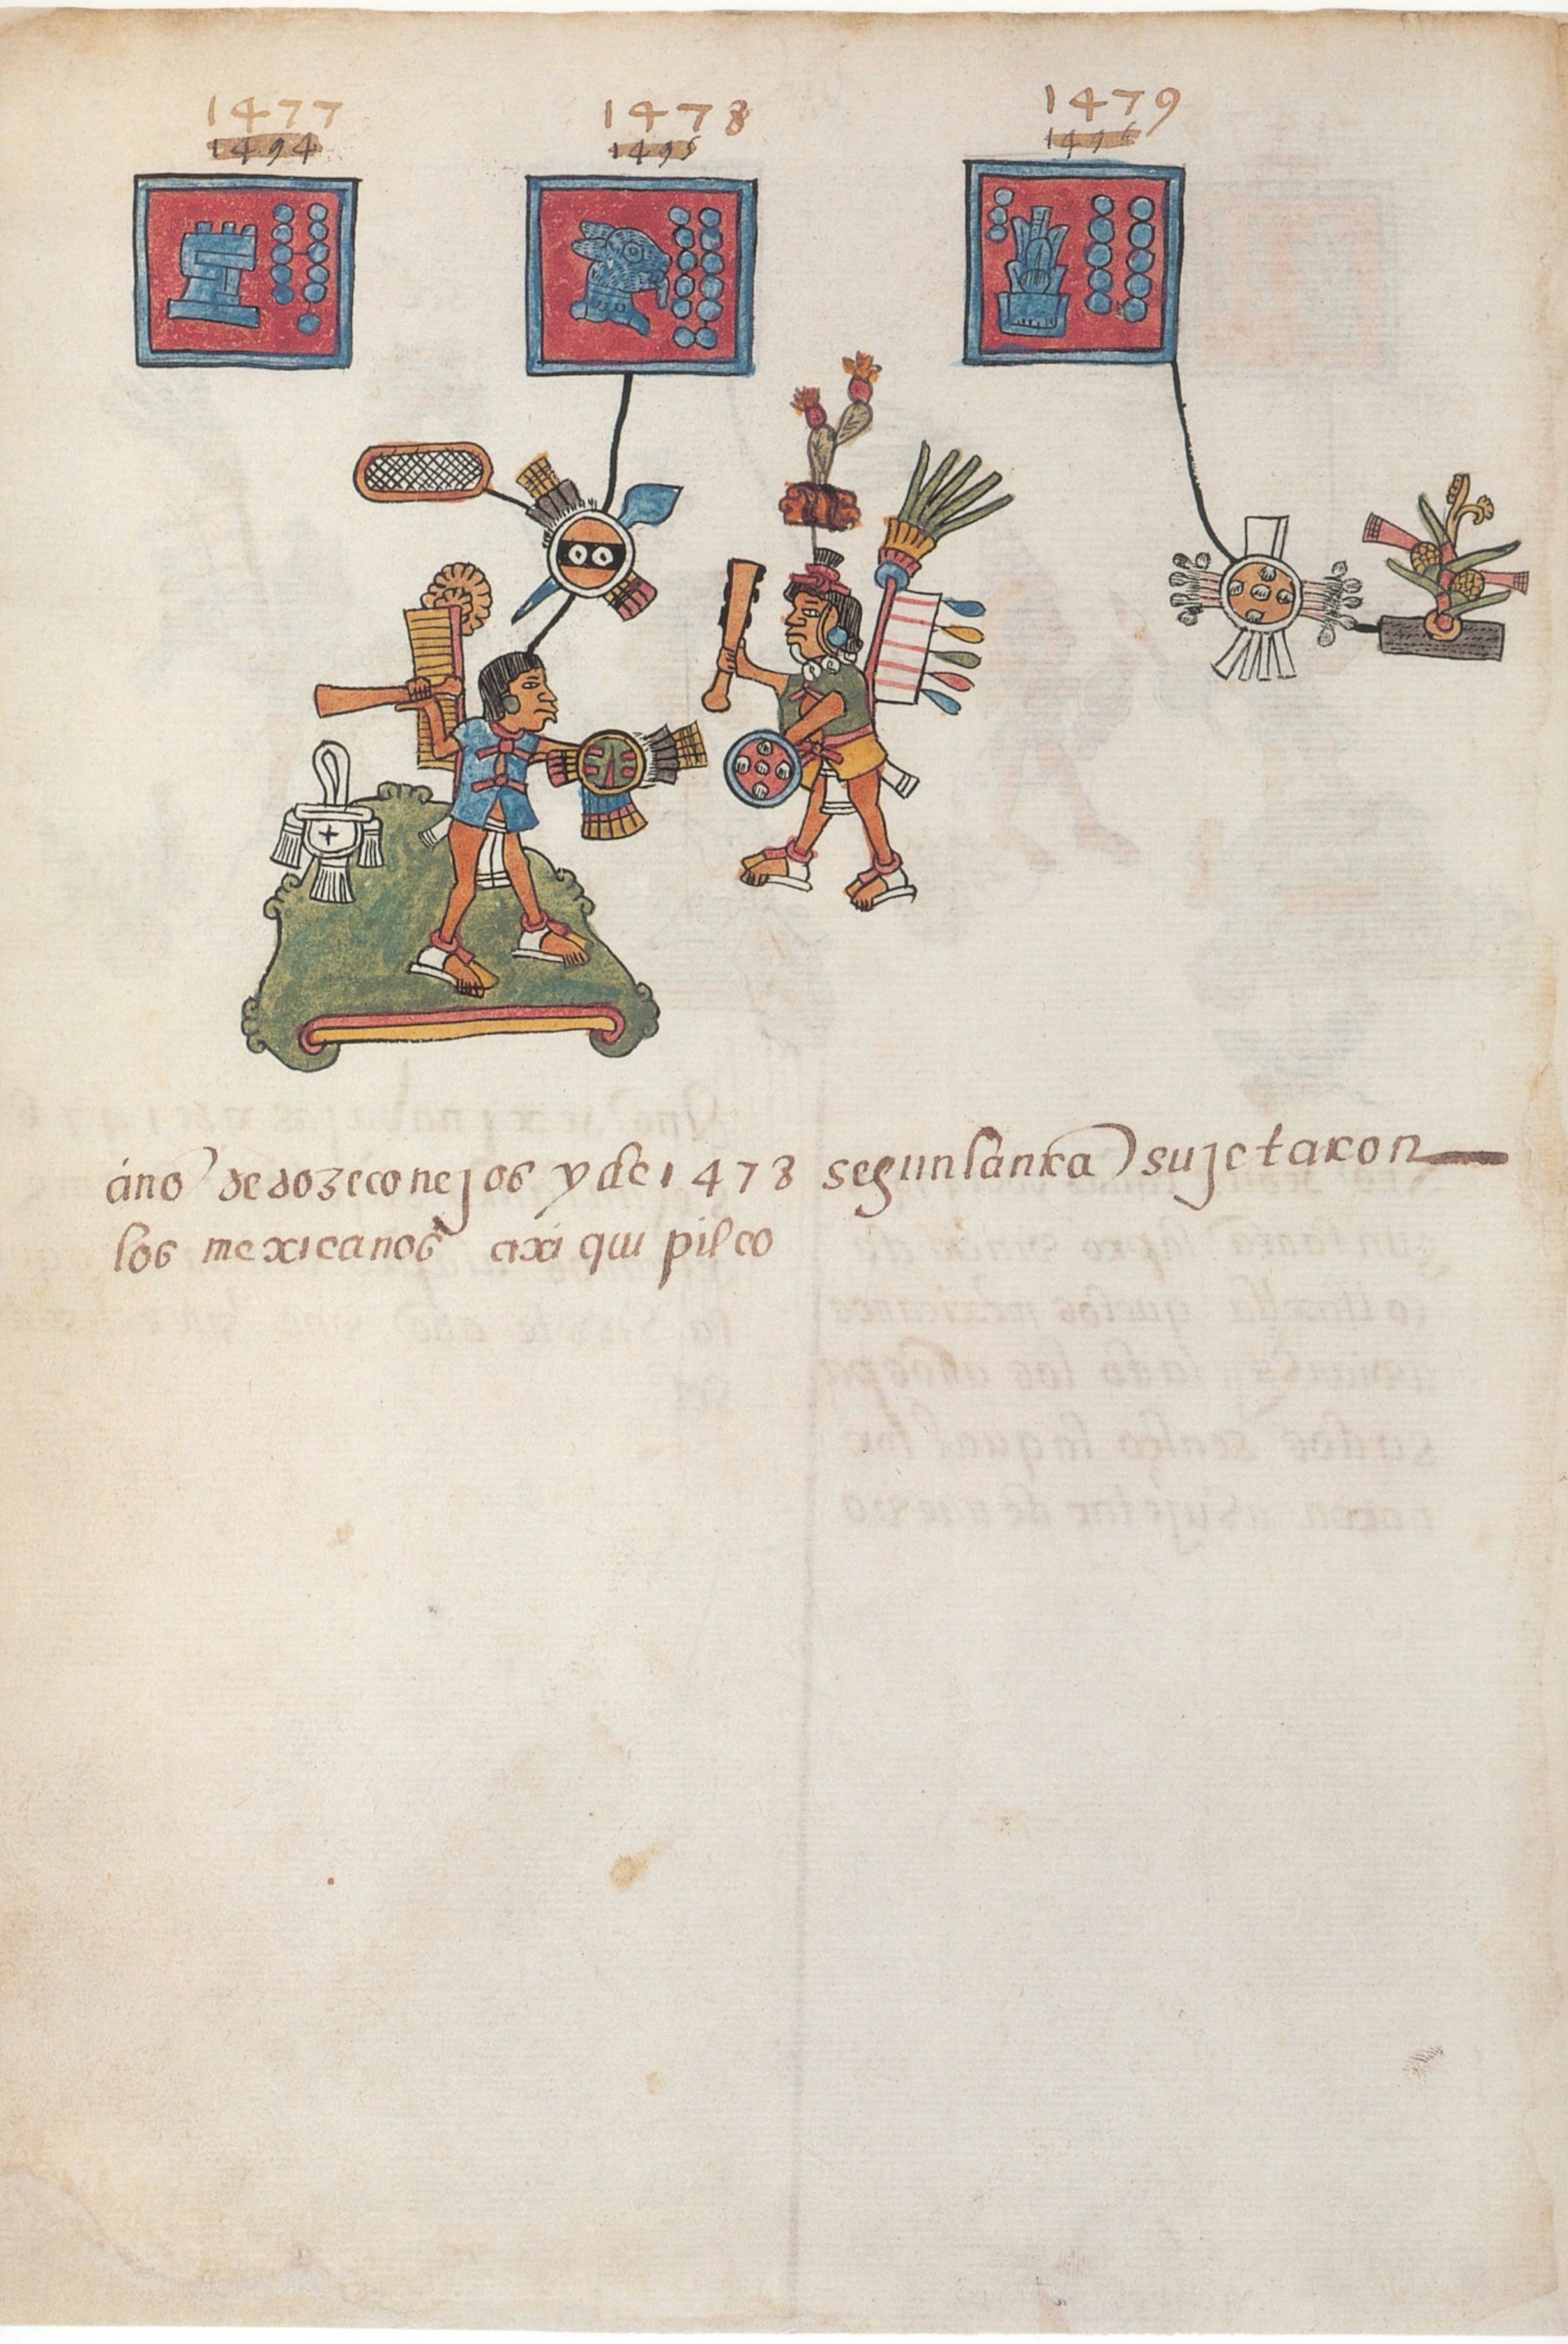 1477 1478 1479
1494 1495 1496
áno de doze conejos y de 1478 segun la nra sujetaron
los mexicanos axiquipilco